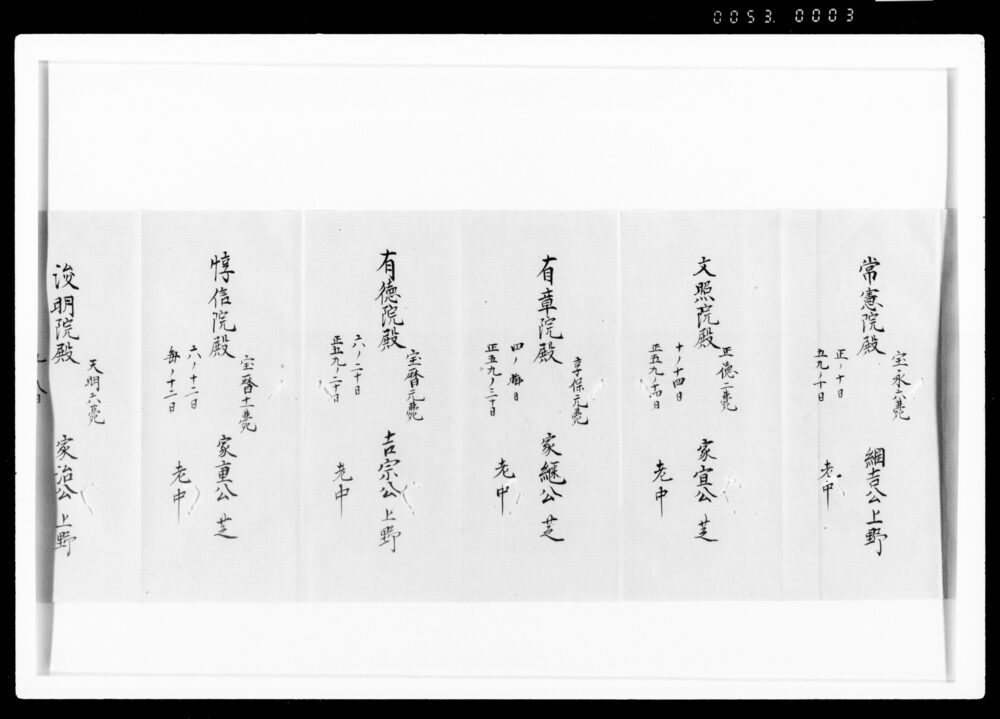 0053. 0003
常憲院殿 綱吉公 上野
宝永六薨
正ノ十日
五九ノ十日
老中
文照院殿 家宣公 芝
正徳二薨
十ノ十四日
正五九ノ十四日
老中
有章院殿 家継公 芝
享保元薨
四ノ晦日
正五九ノ三十日
老中
有徳院殿 吉宗公 上野
宝暦元薨
六ノ二十日
正五九ノ二十日
老中
惇信院殿 家重公 芝
宝暦十一薨
六ノ十二日
毎ノ十二日
老中
浚明院殿 家治公 上野
天明六薨